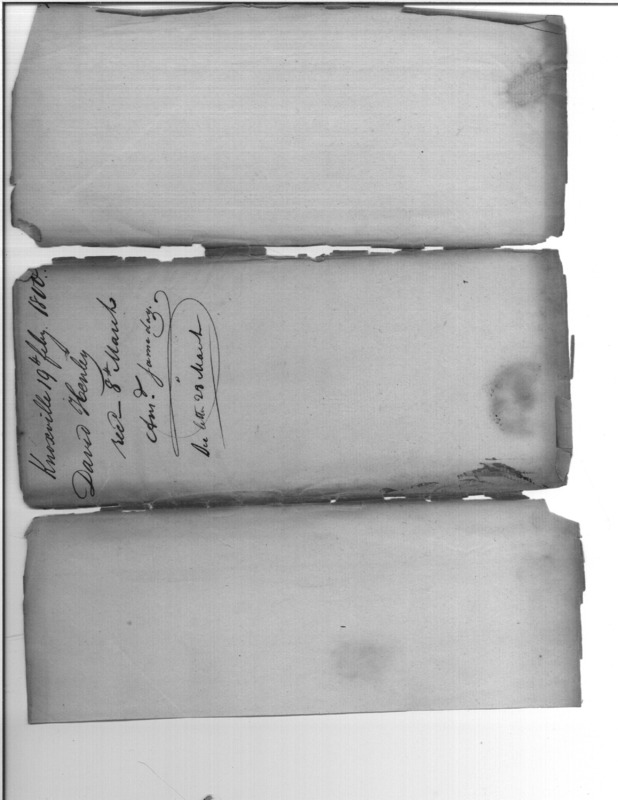 Knoxville 19th feby. 1800.
David Henley
recd 8th March
Ans.d same day.
lettr 23 March